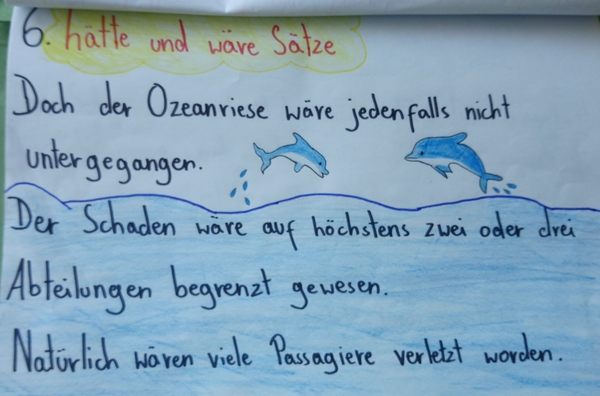 6. hätte und wäre Sätze
Doch der Ozeanriese wäre jedenfalls nicht
untergegangen.
Der Schaden wäre auf höchstens zwei oder drei
Abteilungen begrenzt gewesen.
Natürlich wären viele Passagiere verletzt worden.